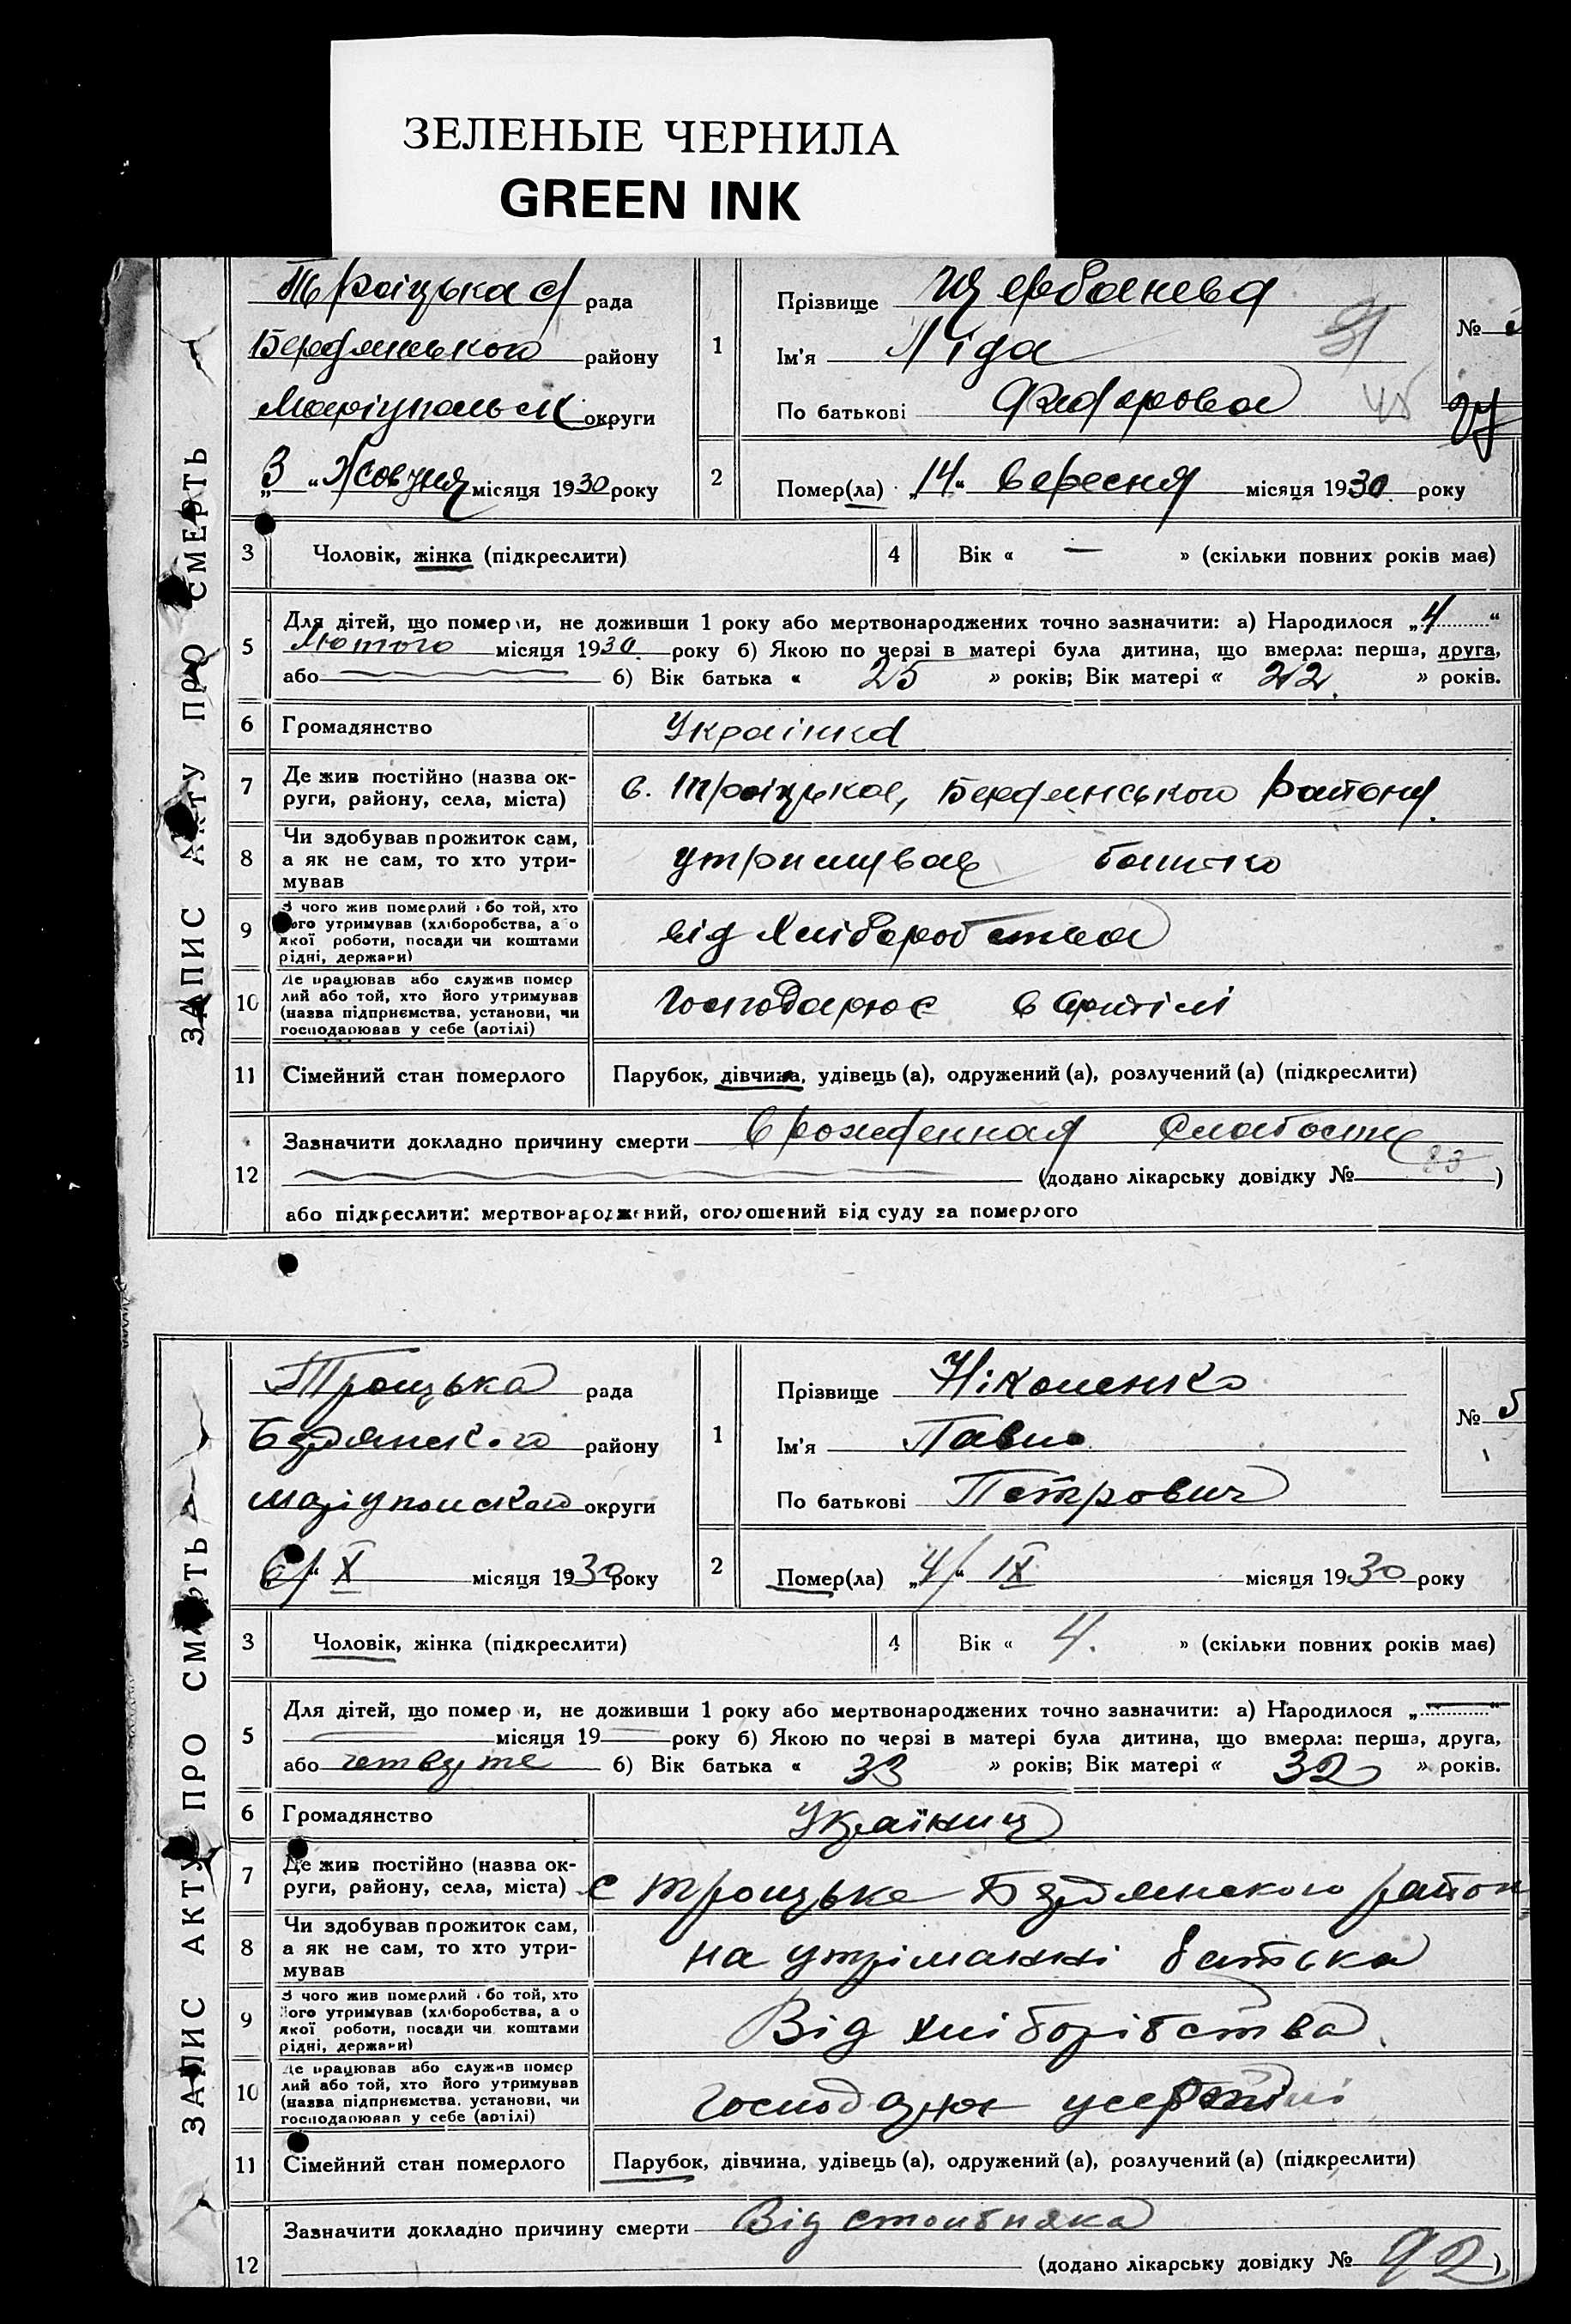 ЗЕЛЕНЫЕ ЧЕРНИЛА
GREEN INK
ЗАПИС АКТУ ПРО СМЕРТЬ
Троіцька с/ рада
Бердянського району
Маріупольськ округи
„3“ Жовтня місяця 1930 року
1
Прізвище Щербанева
Ім'я Ліда
По батькові Федорова
№
2
Помер(ла) „14“ вересня місяця 1930 року
3 Чоловік, жінка (підкреслити)
4 Вік « — » (скільки повних років має)
5 Для дітей, що померли, не доживши 1 року або мертвонароджених точно зазначити: а) Народилося „4“
Лютого місяця 1930 року б) Якою по черзі в матері була дитина, що вмерла: перша, друга,
або б) Вік батька « 25 » років; Вік матері « 22 » років.
6 Громадянство Українка
7 Де жив постійно (назва ок-
руги, району, села, міста) с. Троіцьке, Бердянського району.
8 Чи здобував прожиток сам,
а як не сам, то хто утри-
мував утримував батько
9 З чого жив померлий або той, хто
його утримував (хліборобства, або
якої роботи, посади чи коштами
рідні, держави) від хліборобства
10 Де працював або служив помер
лий або той, хто його утримував
(назва підприємства, установи, чи
господарював у себе (артілі) Господарює в артілі
11 Сімейний стан померлого Парубок, дівчина, удівець (а), одружений (а), розлучений (а) (підкреслити)
12 Зазначити докладно причину смерти врожденная слабость
(додано лікарську довідку № 83)
або підкреслити: мертвонароджений, оголошений від суду за померлого
ЗАПИС АКТУ ПРО СМЕРТЬ
Троцька рада
Бердянского району
Маріуполского округи
6/X місяця 1930 року
1
Прізвище Ніколенко
Ім'я Павло
По батькові Петрович
№ 5
2
Помер(ла) „4/“ IX місяця 1930 року
3 Чоловік, жінка (підкреслити)
4 Вік « 4. » (скільки повних років має)
5 Для дітей, що померли, не доживши 1 року або мертвонароджених точно зазначити: а) Народилося „—“
— місяця 19— року б) Якою по черзі в матері була дитина, що вмерла: перша, друга,
або четверте б) Вік батька « 33 » років; Вік матері « 32 » років.
6 Громадянство Україниц
7 Де жив постійно (назва ок-
руги, району, села, міста) с Троцьке Бердянского район
8 Чи здобував прожиток сам,
а як не сам, то хто утри-
мував на утріманні батька
9 З чого жив померлий або той, хто
його утримував (хліборобства, або
якої роботи, посади чи коштами
рідні, держави) Від хліборібства
10 Де працював або служив помер
лий або той, хто його утримував
(назва підприємства, установи, чи
господарював у себе (артілі) господарює
11 Сімейний стан померлого Парубок, дівчина, удівець (а), одружений (а), розлучений (а) (підкреслити)
12 Зазначити докладно причину смерти Від столбняка
(додано лікарську довідку № 92)